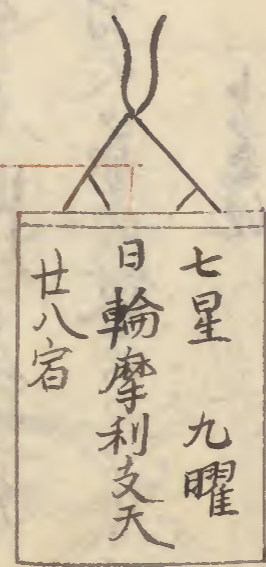 七星 九曜
日輪摩利支天
廿八宿